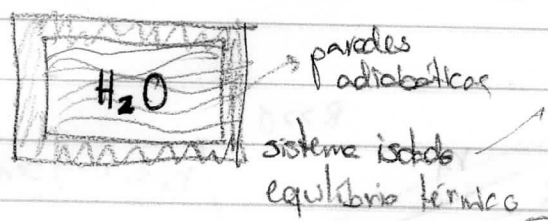 H₂O
paredes
adiabáticas
sistema isolado
equilíbrio térmico